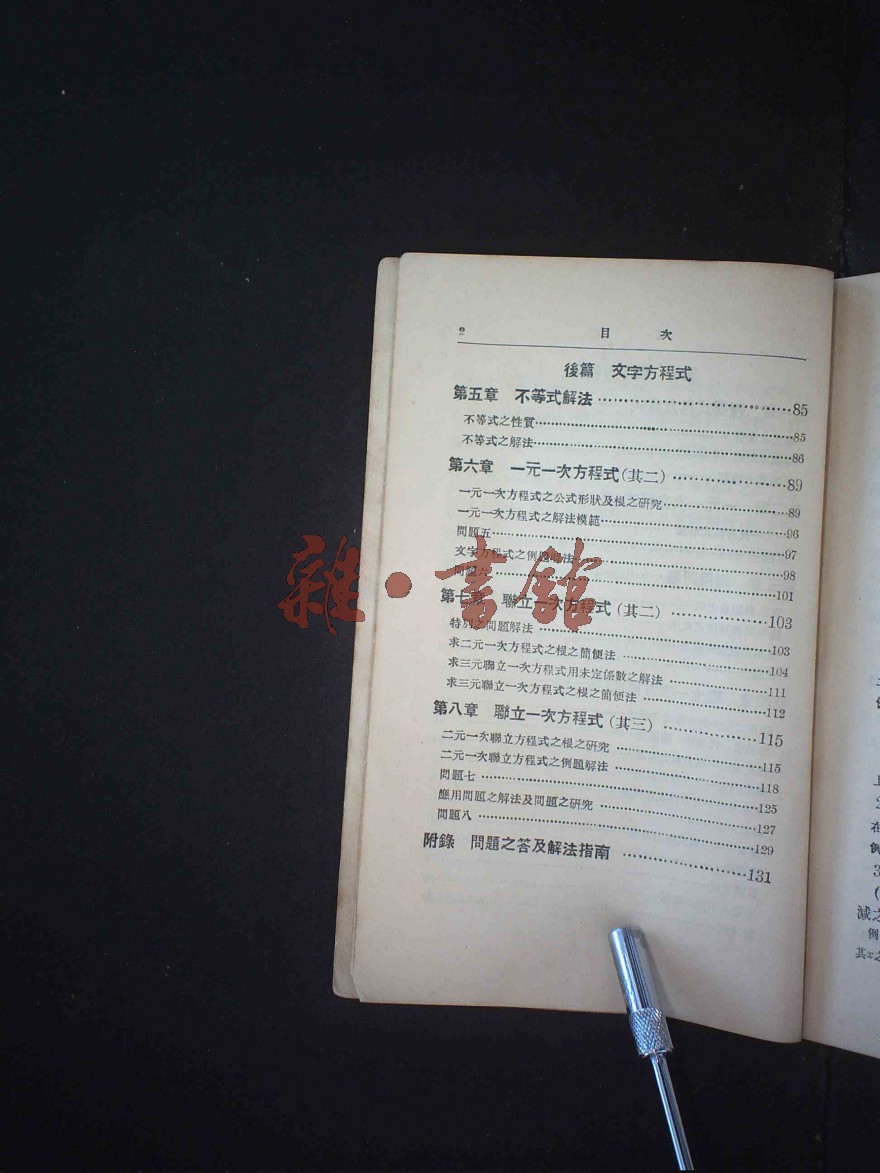 2 目 次
後篇 文字方程式
第五章 不等式解法……85
不等式之性質……85
不等式之解法……86
第六章 一元一次方程式(其二)……89
一元一次方程式之公式形狀及根之研究……89
一元一次方程式之解法模範……96
問題五……97
文字方程式之例題 法……98
問題六……101
第七章 聯立一次方程式(其二)……103
特別之問題解法……103
求二元一次方程式之根之簡便法……104
求三元聯立一次方程式用未定係數之解法……111
求三元聯立一次方程式之根之簡便法……112
第八章 聯立一次方程式(其三)……115
二元一次聯立方程式之根之研究……115
二元一次聯立方程式之例題解法……118
問題七……125
應用問題之解法及問題之研究……127
問題八……129
附錄 問題之答及解法指南……131
雜·書館
在
3
(
減之
例
其x之